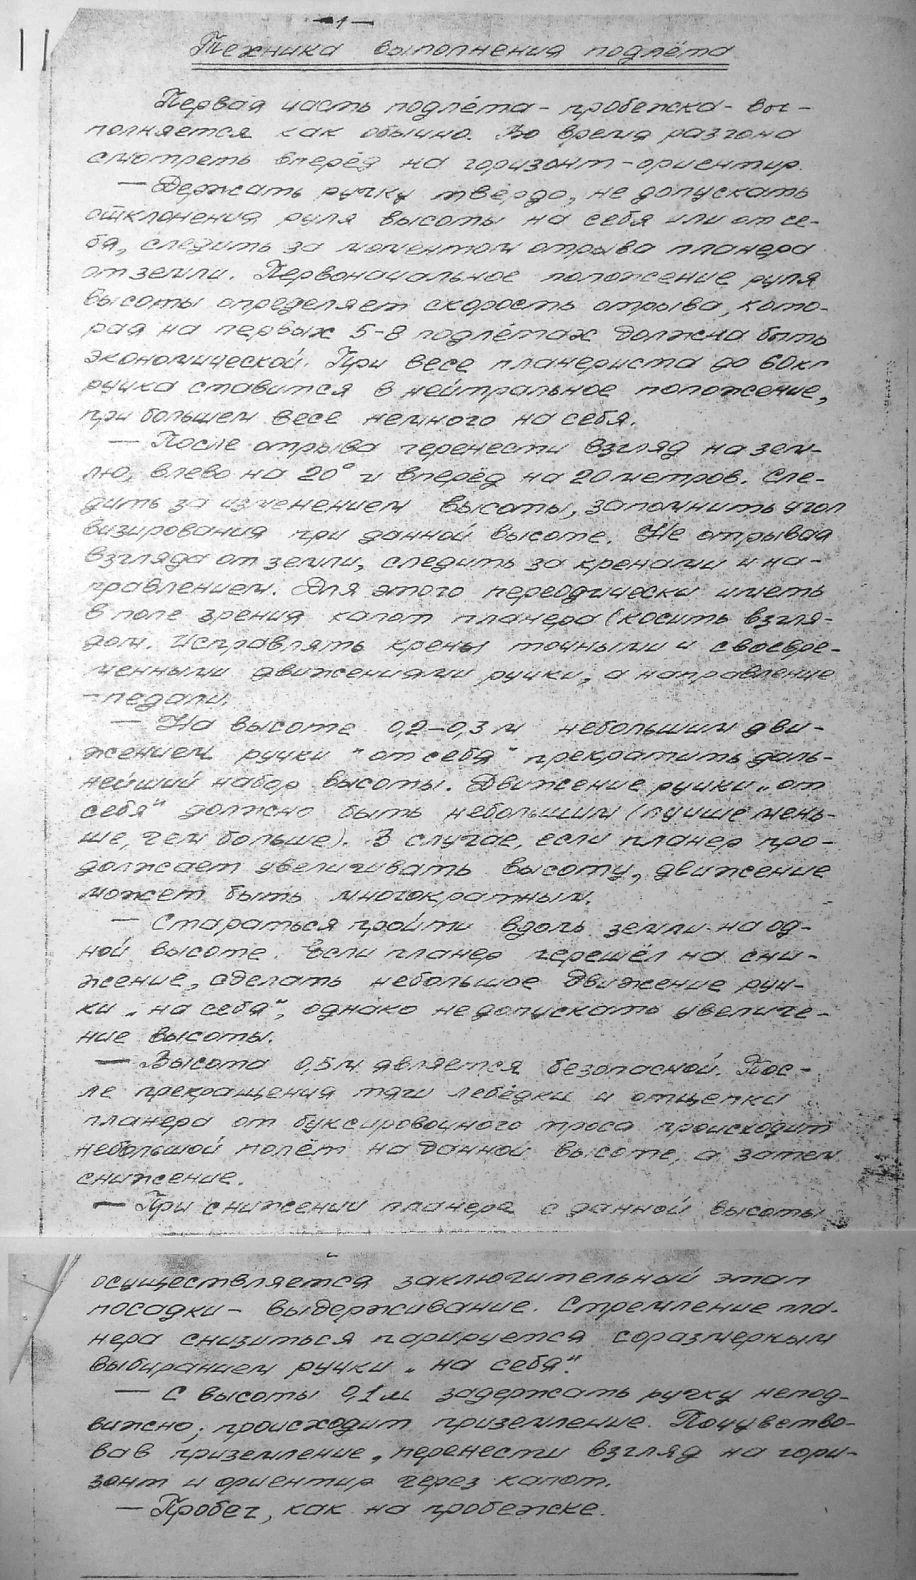 -1-
Техника выполнения подлёта
Первая часть подлёта - пробежка - вы-
полняется как обычно. Во время разгона
смотреть вперёд на горизонт - ориентир.
— Держать ручку твёрдо, не допускать
отклонения руля высоты на себя или от се-
бя, следить за моментом отрыва планера
от земли. Первоначальное положение руля
высоты определяет скорость отрыва, кото-
рая на первых 5-8 подлётах должна быть
экономической. При весе планериста до 60кг
ручка ставится в нейтральное положение,
при большем весе немного на себя.
— После отрыва перенести взгляд на зем-
лю, влево на 20° и вперёд на 20 метров. Сле-
дить за изменением высоты, запомнить угол
визирования при данной высоте. Не отрывая
взгляда от земли, следить за кренами и на-
правлением. Для этого переодически иметь
в поле зрения капот планера (косить взгля-
дом. Исправлять крены точными и своевре-
менными движениями ручки, а направление
- педали.
— На высоте 0,2-0,3 м небольшим дви-
жением ручки "от себя" прекратить даль-
нейший набор высоты. Движение ручки „от
себя" должно быть небольшим (лучше мень-
ше, чем больше). В случае, если планер про-
должает увеличивать высоту, движение
может быть многократным.
— Стараться пройти вдоль земли на од-
ной высоте. Если планер перешёл на сни-
жение, сделать небольшое движение руч-
ки „на себя", однако не допускать увеличе-
ние высоты.
— Высота 0,5 м является безопасной. Пос-
ле прекращения тяги лебёдки и отцепки
планера от буксировочного троса происходит
небольшой полёт на данной высоте, а затем
снижение.
— При снижении планера с данной высоты
осуществляется заключительный этап
посадки - выдерживание. Стремление пла-
нера снизиться парируется соразмерным
выбиранием ручки „на себя".
— С высоты 0,1 м задержать ручку непод-
вижно; происходит приземление. Почувство-
вав приземление, перенести взгляд на гори-
зонт и ориентир через капот.
— Пробег, как на пробежке.